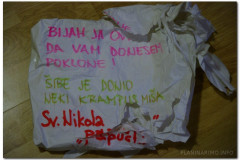 BIJAH JA OVDJE
DA VAM DONESEM
POKLONE !
ŠIBE JE DONIO
NEKI KRAMPUS MIŠA
Sv. Nikola
"papuči"
PLANINARIMO.INFO